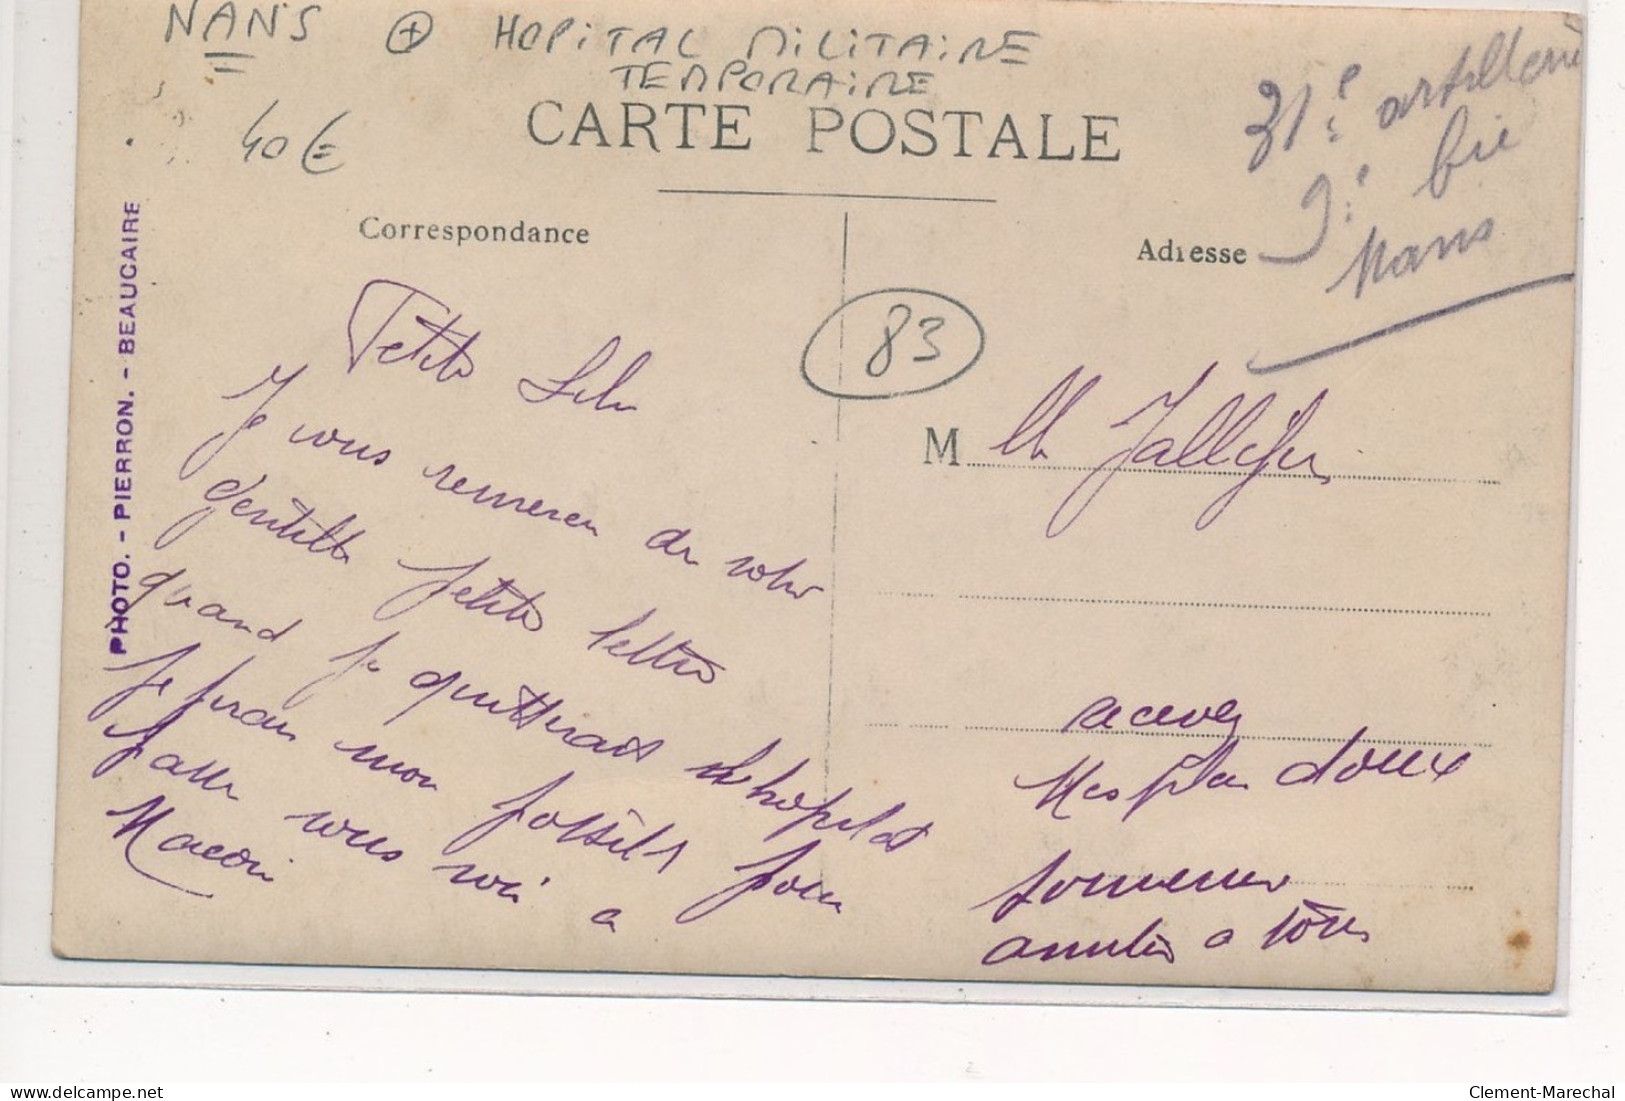 NANS + HOPITAL MILITAIRE
TEMPORAIRE
40€
31e artillerie
9e bie
Nans
CARTE POSTALE
Correspondance
Adresse
PHOTO. - PIERRON. - BEAUCAIRE
83
Petite Lili
Je vous remercie de votre
gentille petite lettre
quand je quitterait l'hopital
je ferais mon possible pour
aller vous voir a
Macon
M
recevez
Mes plus doux
souvenir
amitiés a tous
Clement-Marechal